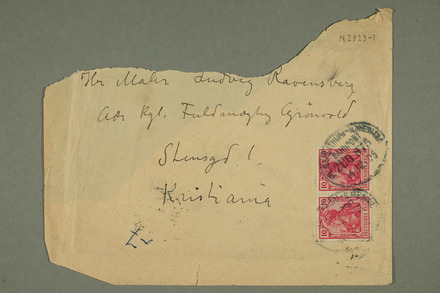 N 2813-1
Hr Maler Ludvig Ravensberg
Adr Kgl. Fuldmægtig Grönvold
Stensgd 1
Kristiania
10 10
10 10